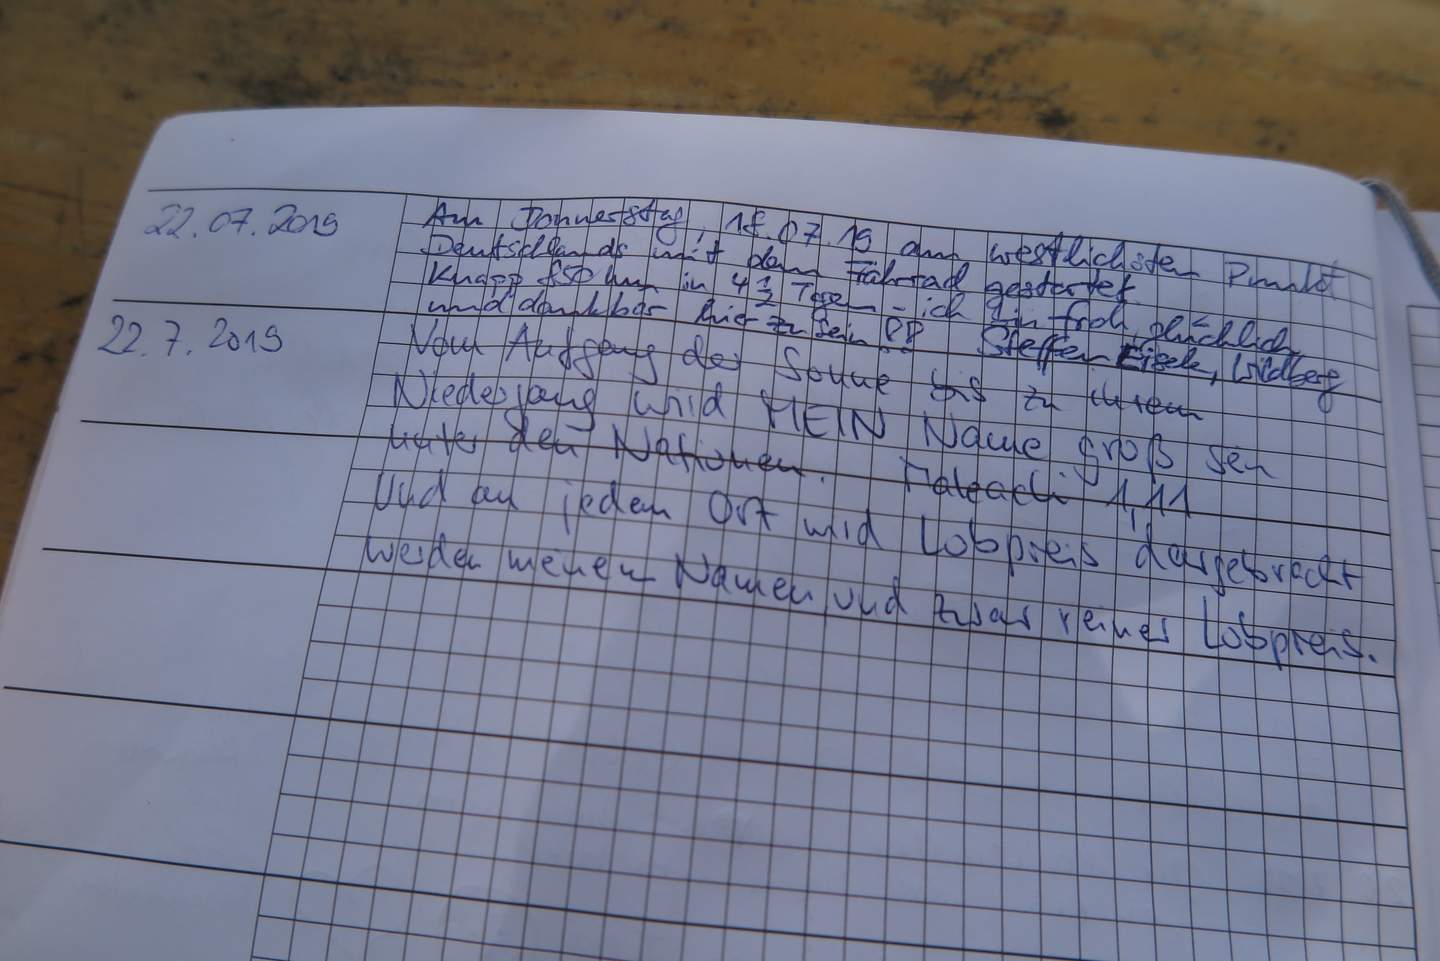 22.07.2019
Am Donnerstag, 18.07.19 am westlichsten Punkt
Deutschlands mit dem Fahrrad gestartet
Knapp 850 km in 4 1/2 Tagen - ich bin froh, glücklich
und dankbar hier zu sein !! Steffen Eisele, Wildberg
22.7.2019
Vom Aufgang der Sonne bis zu ihrem
Niedergang wird MEIN Name groß sein
unter den Nationen. Maleachi 1,11
Und an jedem Ort wird Lobpreis dargebracht
werden meinem Namen und zwar reiner Lobpreis.